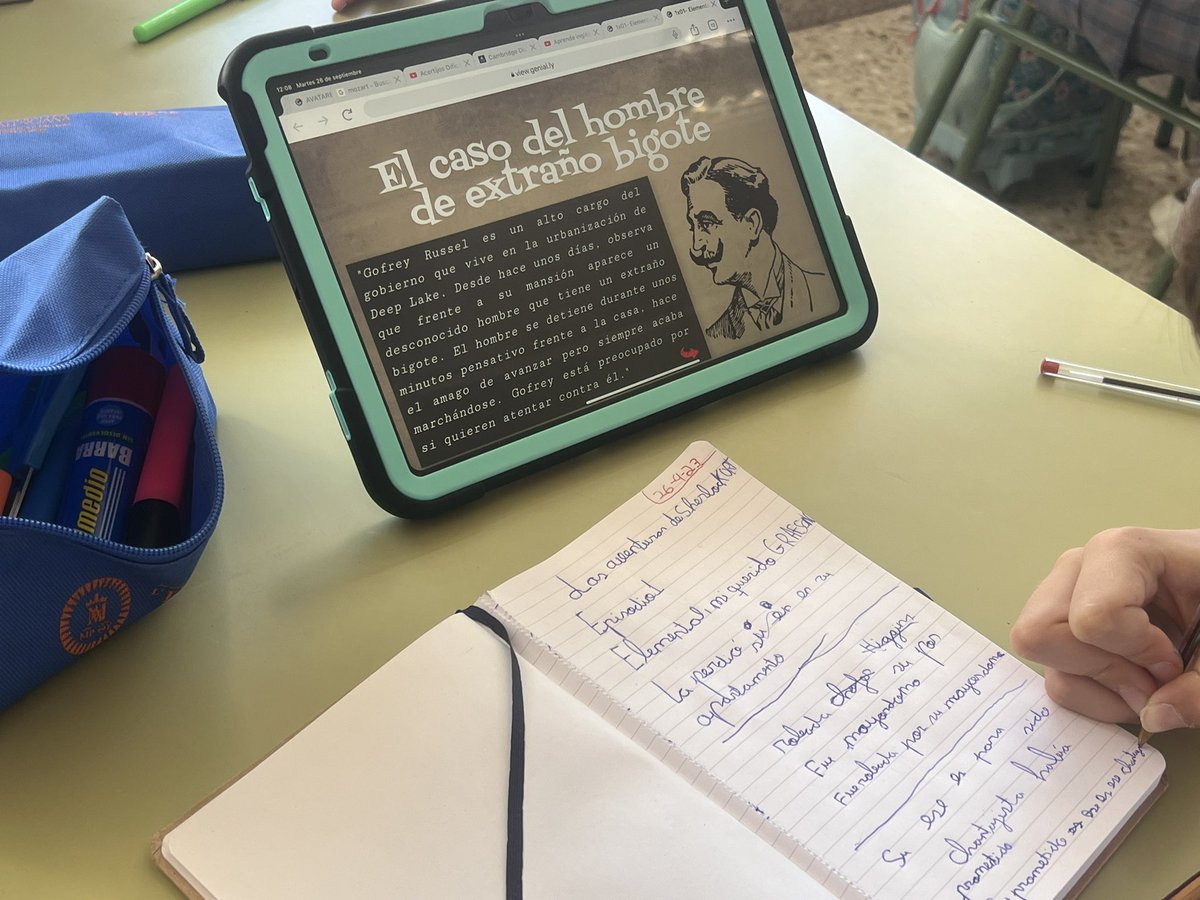 12:08 Martes 26 de septiembre
AVATARE
mozart - Busc
Acertijos Difíc
Cambridge Di
Aprende inglé
1x01- Elemen
1x01- Elementa
view.genial.ly
El caso del hombre
de extraño bigote
"Gofrey Russel es un alto cargo del
gobierno que vive en la urbanización de
Deep Lake. Desde hace unos días, observa
que frente a su mansión aparece un
desconocido hombre que tiene un extraño
bigote. El hombre se detiene durante unos
minutos pensativo frente a la casa, hace
el amago de avanzar pero siempre acaba
marchándose. Gofrey está preocupado por
si quieren atentar contra él."
BARRA
medio
26-9-23
Las aventuras de Sherlock
Episodio1
Elemental, mi querido
La perdió en su
apartamento
Higgins
Fue mayordomo su por
por su mayordomo
Su ese es para sido
chantajista había
prometido